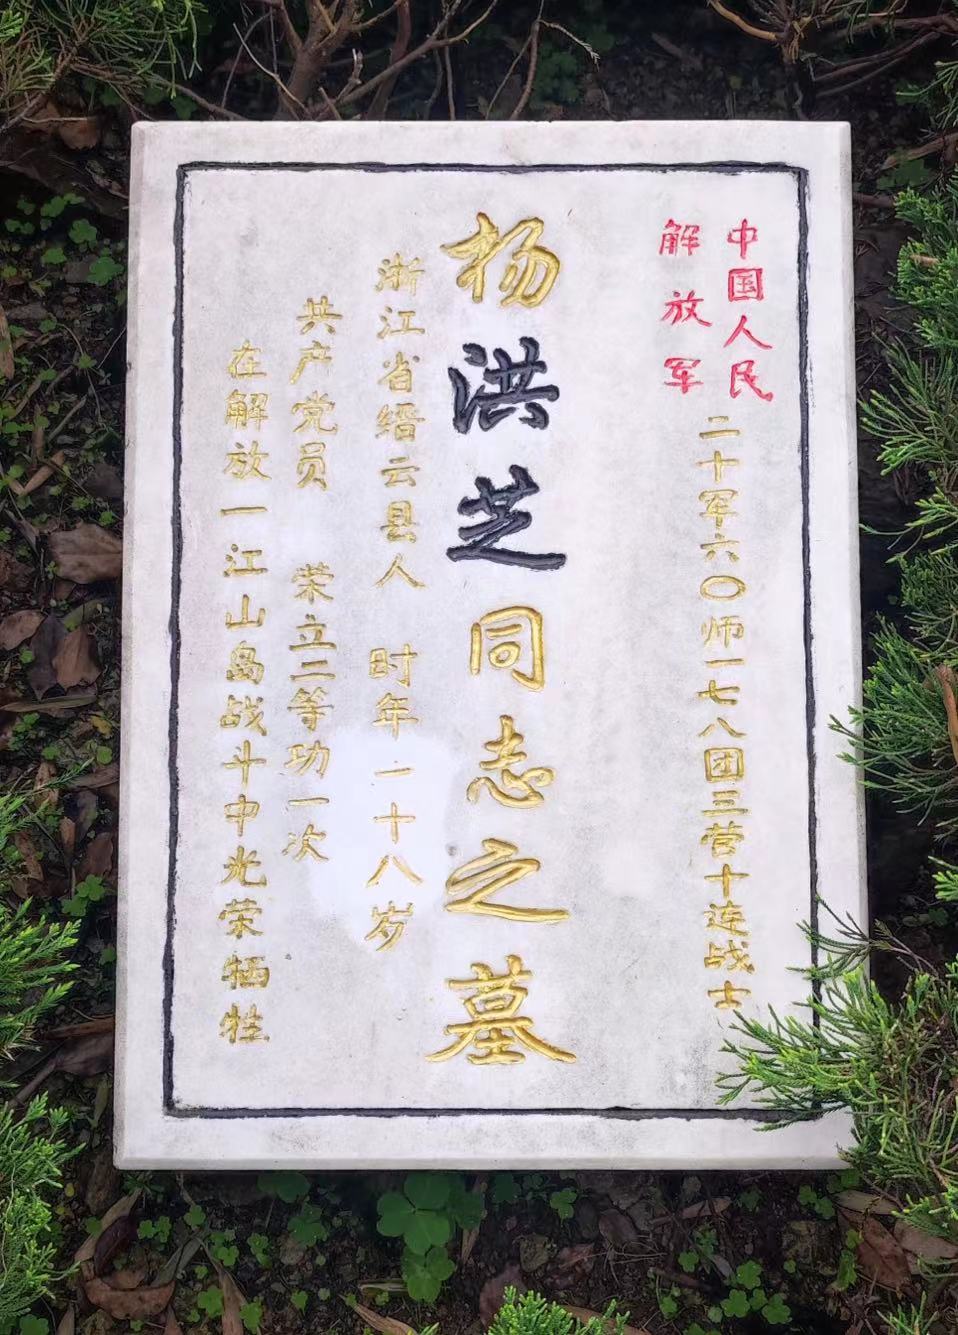 中国人民
解放军
二十军六〇师一七八团三营十连战士
杨洪芝同志之墓
浙江省缙云县人 时年一十八岁
共产党员 荣立二等功一次
在解放一江山岛战斗中光荣牺牲